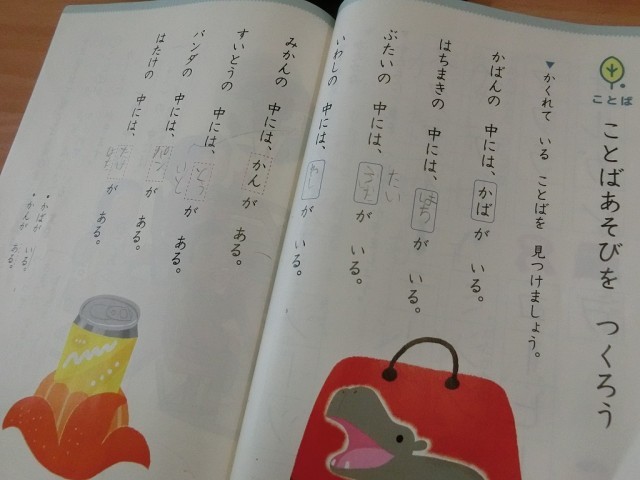 ことば
ことばあそびを つくろう
▼かくれて いる ことばを 見つけましょう。
かばんの 中には、かばが いる。
はちまきの 中には、はちが いる。
ぶたいの 中には、ぶたが いる。
たい
いわしの 中には、わしが いる。
みかんの 中には、かんが ある。
すいとうの 中には、が ある。
パンダの 中には、パンが ある。
はたけの 中には、が ある。
・かばが いる。
・かんが ある。